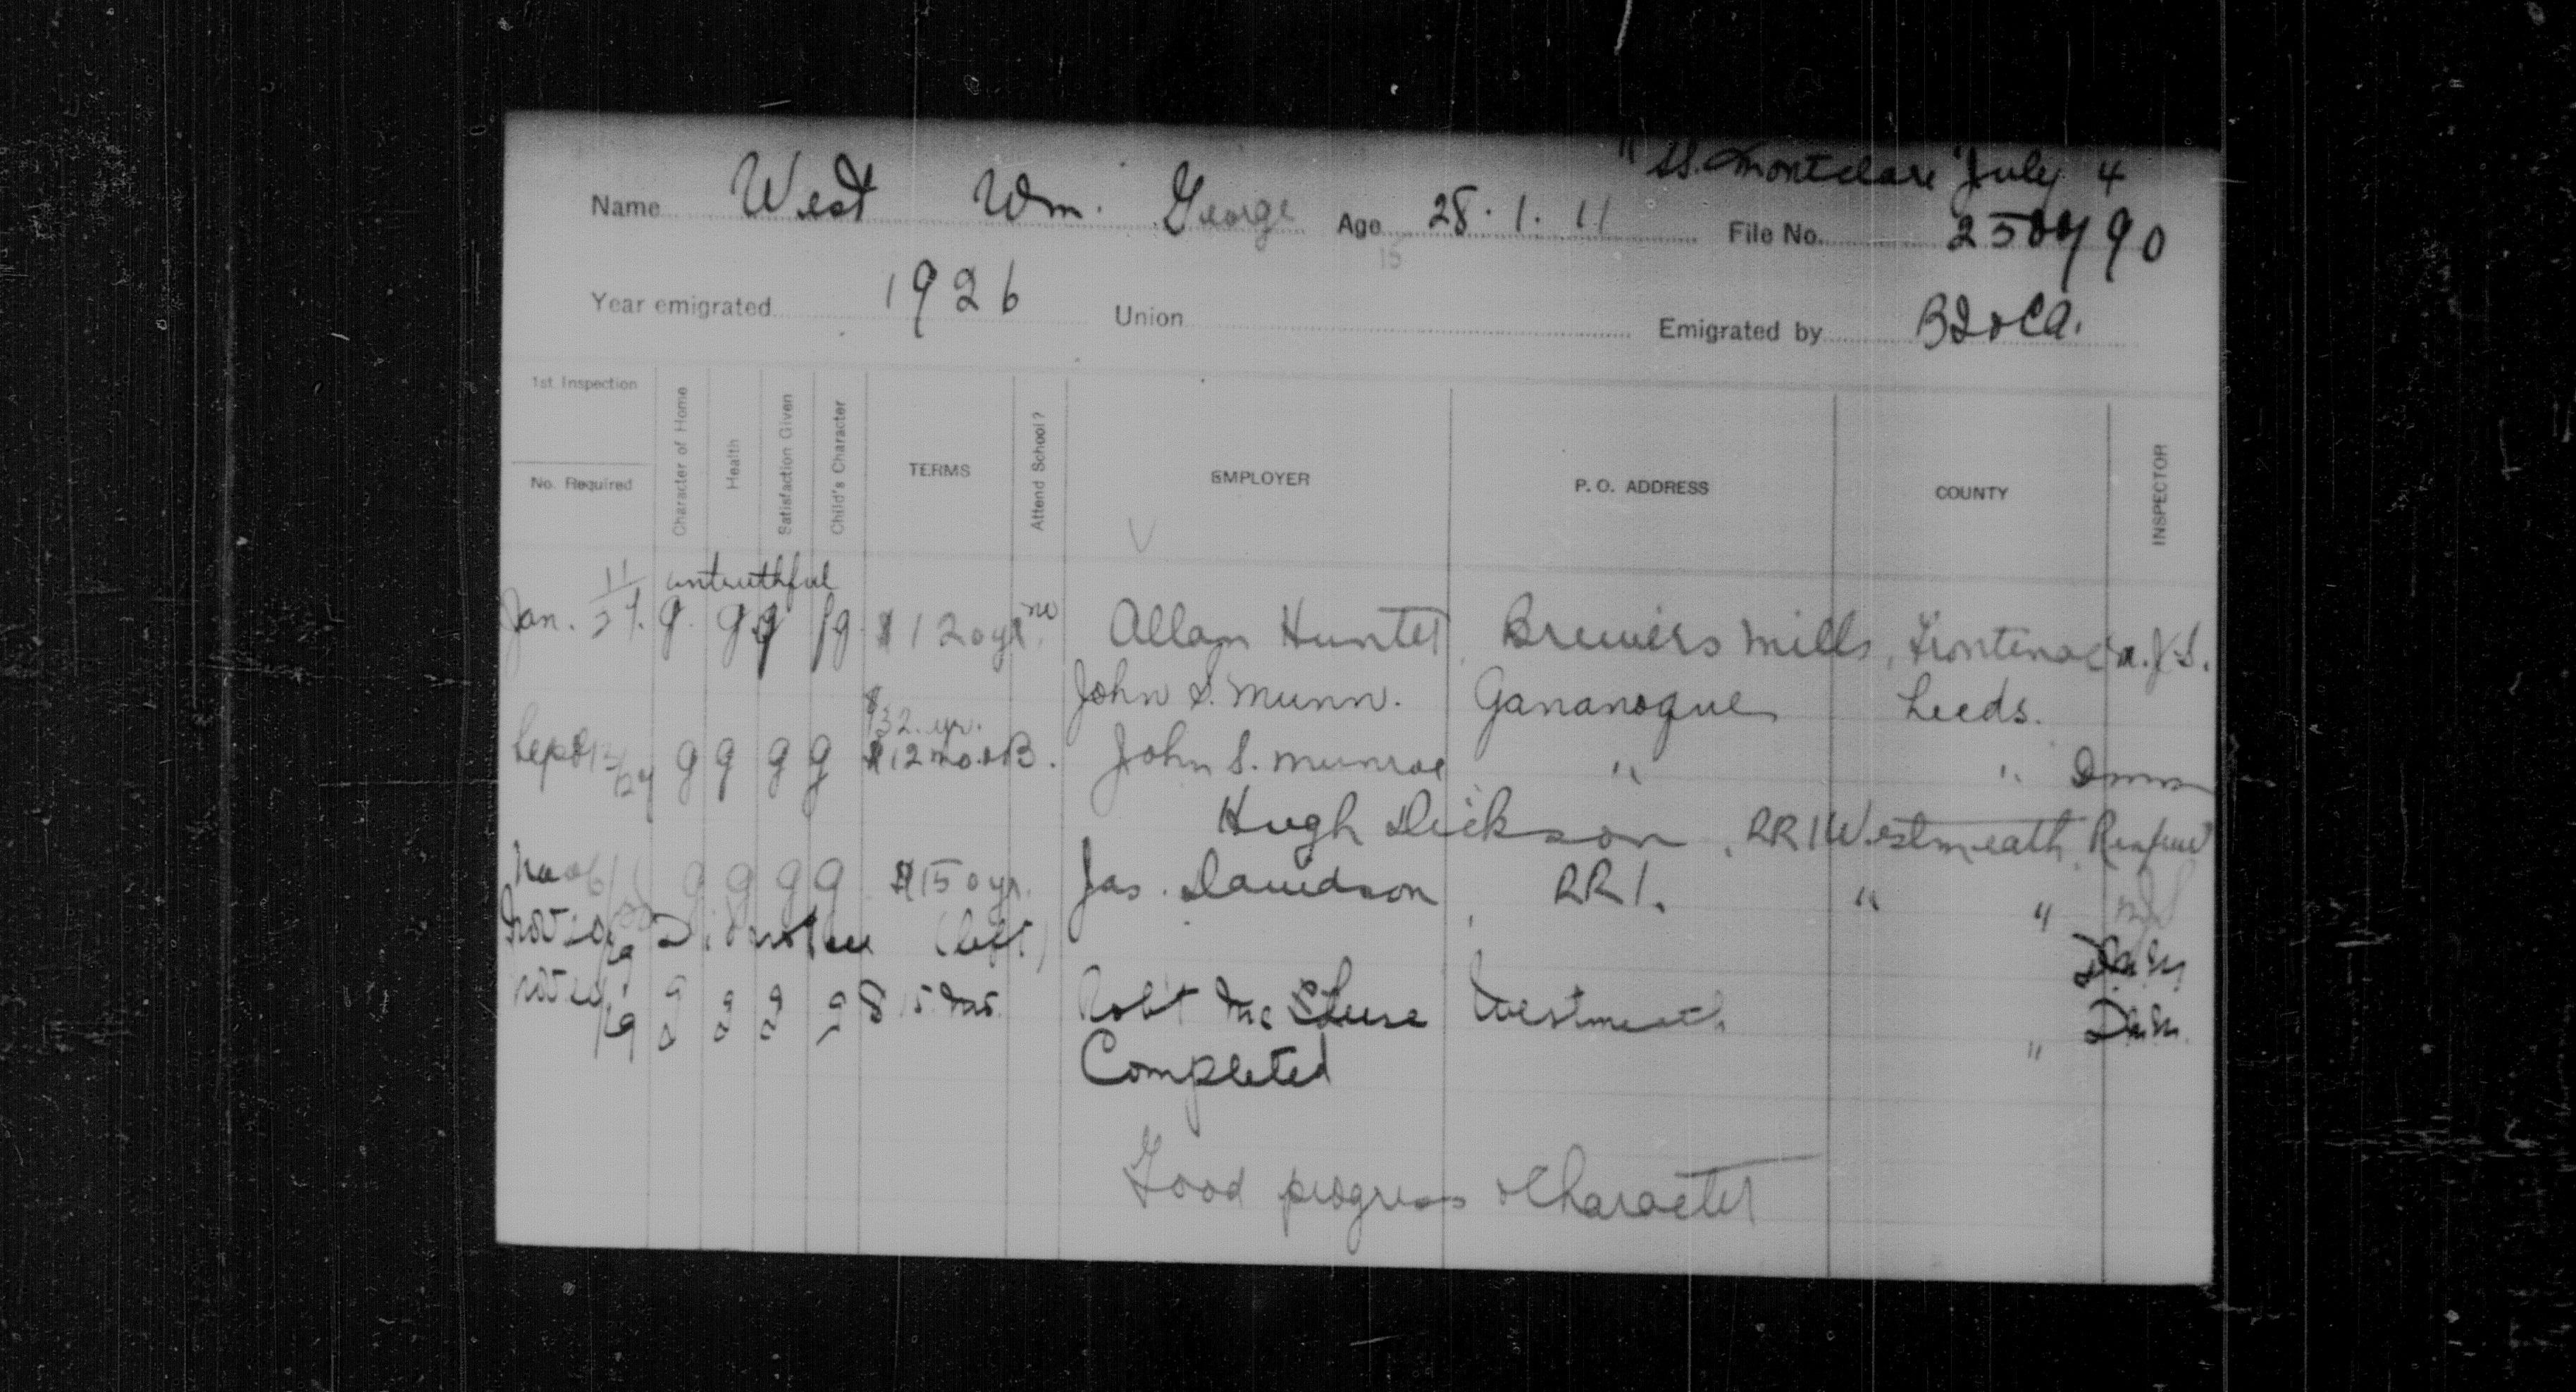 " SS. Montclare July 4
Name West Wm. George Age 28. 1. 11 File No. 90
15
Year emigrated 1926 Union Emigrated by
1st Inspection
No. Required
Character of Home
Health
Satisfaction Given
Child's Character
TERMS
Attend School?
EMPLOYER
P. O. ADDRESS
COUNTY
INSPECTOR
untruthful
Jan. 11/27. g. g g fg $120 yr. no Allan Hunter, Brewers Mills, Frontenac
John S. Munn. Gananoque Leeds.
$132. yr.
Sept g g g g $12 mo. John S. Munroe " "
Hugh Dickson, RR 1 Westmeath, Renfrew
g g g g $150 yr. Jas. Davidson, RR 1. " "
Nov 20/29 (left)
Nov 20/29 g g g g $15. mo. Robt Westmeath "
Completed
Good progress & character